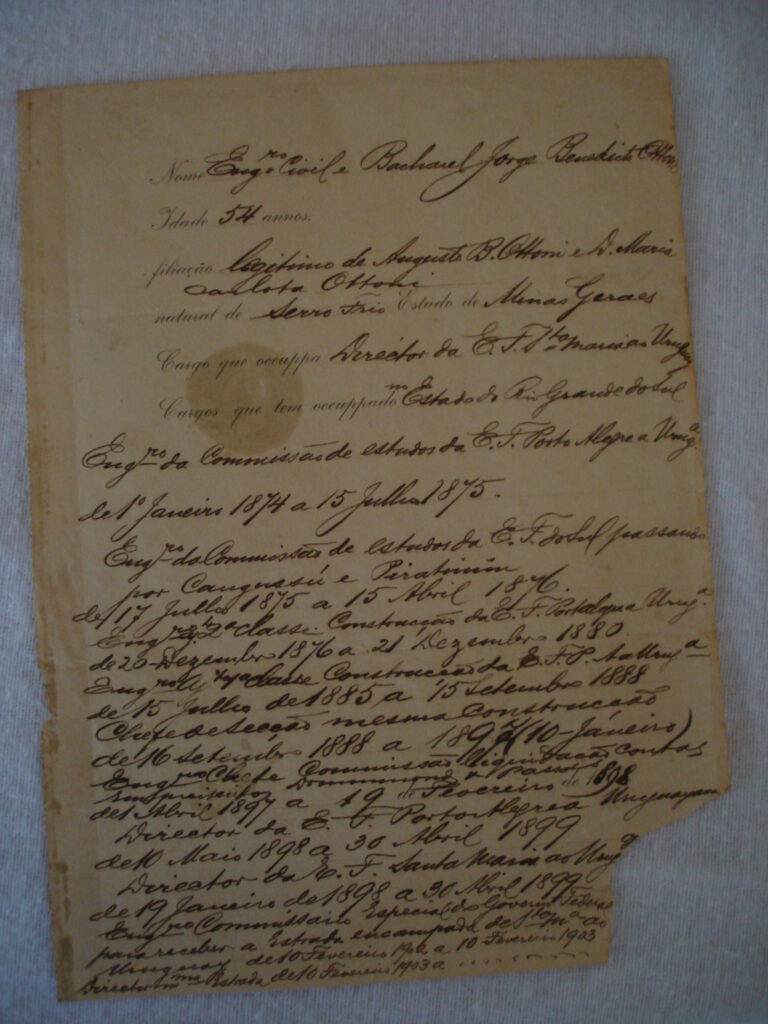 Nome Engro Civil e Bacharel Jorge Benedicto Ottoni
Idade 54 annos.
filiação legitimo de Augusto B. Ottoni e D. Maria
Carlota Ottoni
natural de Serro Frio Estado de Minas Geraes
Cargo que occuppa Diréctor da E. F. Sta Maria ao Uruguay
Cargos que tem occuppado no Estado do Rio Grande do Sul
Engro da Commissão de estudos da E. F. Porto Alegre a Uruga
de 1º Janeiro 1874 a 15 Julho 1875.
Engro da Commissão de estudos da E. F. do Sul passando
por Cangussú e Piratinim
de 17 Julho 1875 a 15 Abril 1876.
Engro 2ª classe Construcção da E. F. Porto Alegre a Uruga.
de 20 Dezembro 1876 a 21 Dezembro 1880
Engro 1ª classe Construcção da E. F. P. A a Uruga
de 15 Julho de 1885 a 15 Setembro 1888
Chefe de Secção mesma construcção
de 16 Setembro 1888 a 1897 (10-Janeiro)
Engro Chefe Commissão liquidação contas
Drummond e Passos
de 1 Abril 1897 a 19 de Fevereiro de 1898
Director da E. F. Porto Alegre a Uruguayana
de 10 Maio 1898 a 30 Abril 1899
Director da E. F. Santa Maria ao Uruga
de 19 Janeiro de 1898 a 30 Abril 1899
Engro Commissario Especial do Governo Federal
para receber a Estrada encampada de Sta Ma ao
Uruguay de 10 Fevereiro 1902 a 10 Fevereiro 1903
Director mma Estrada de 10 Fevereiro 1903 a